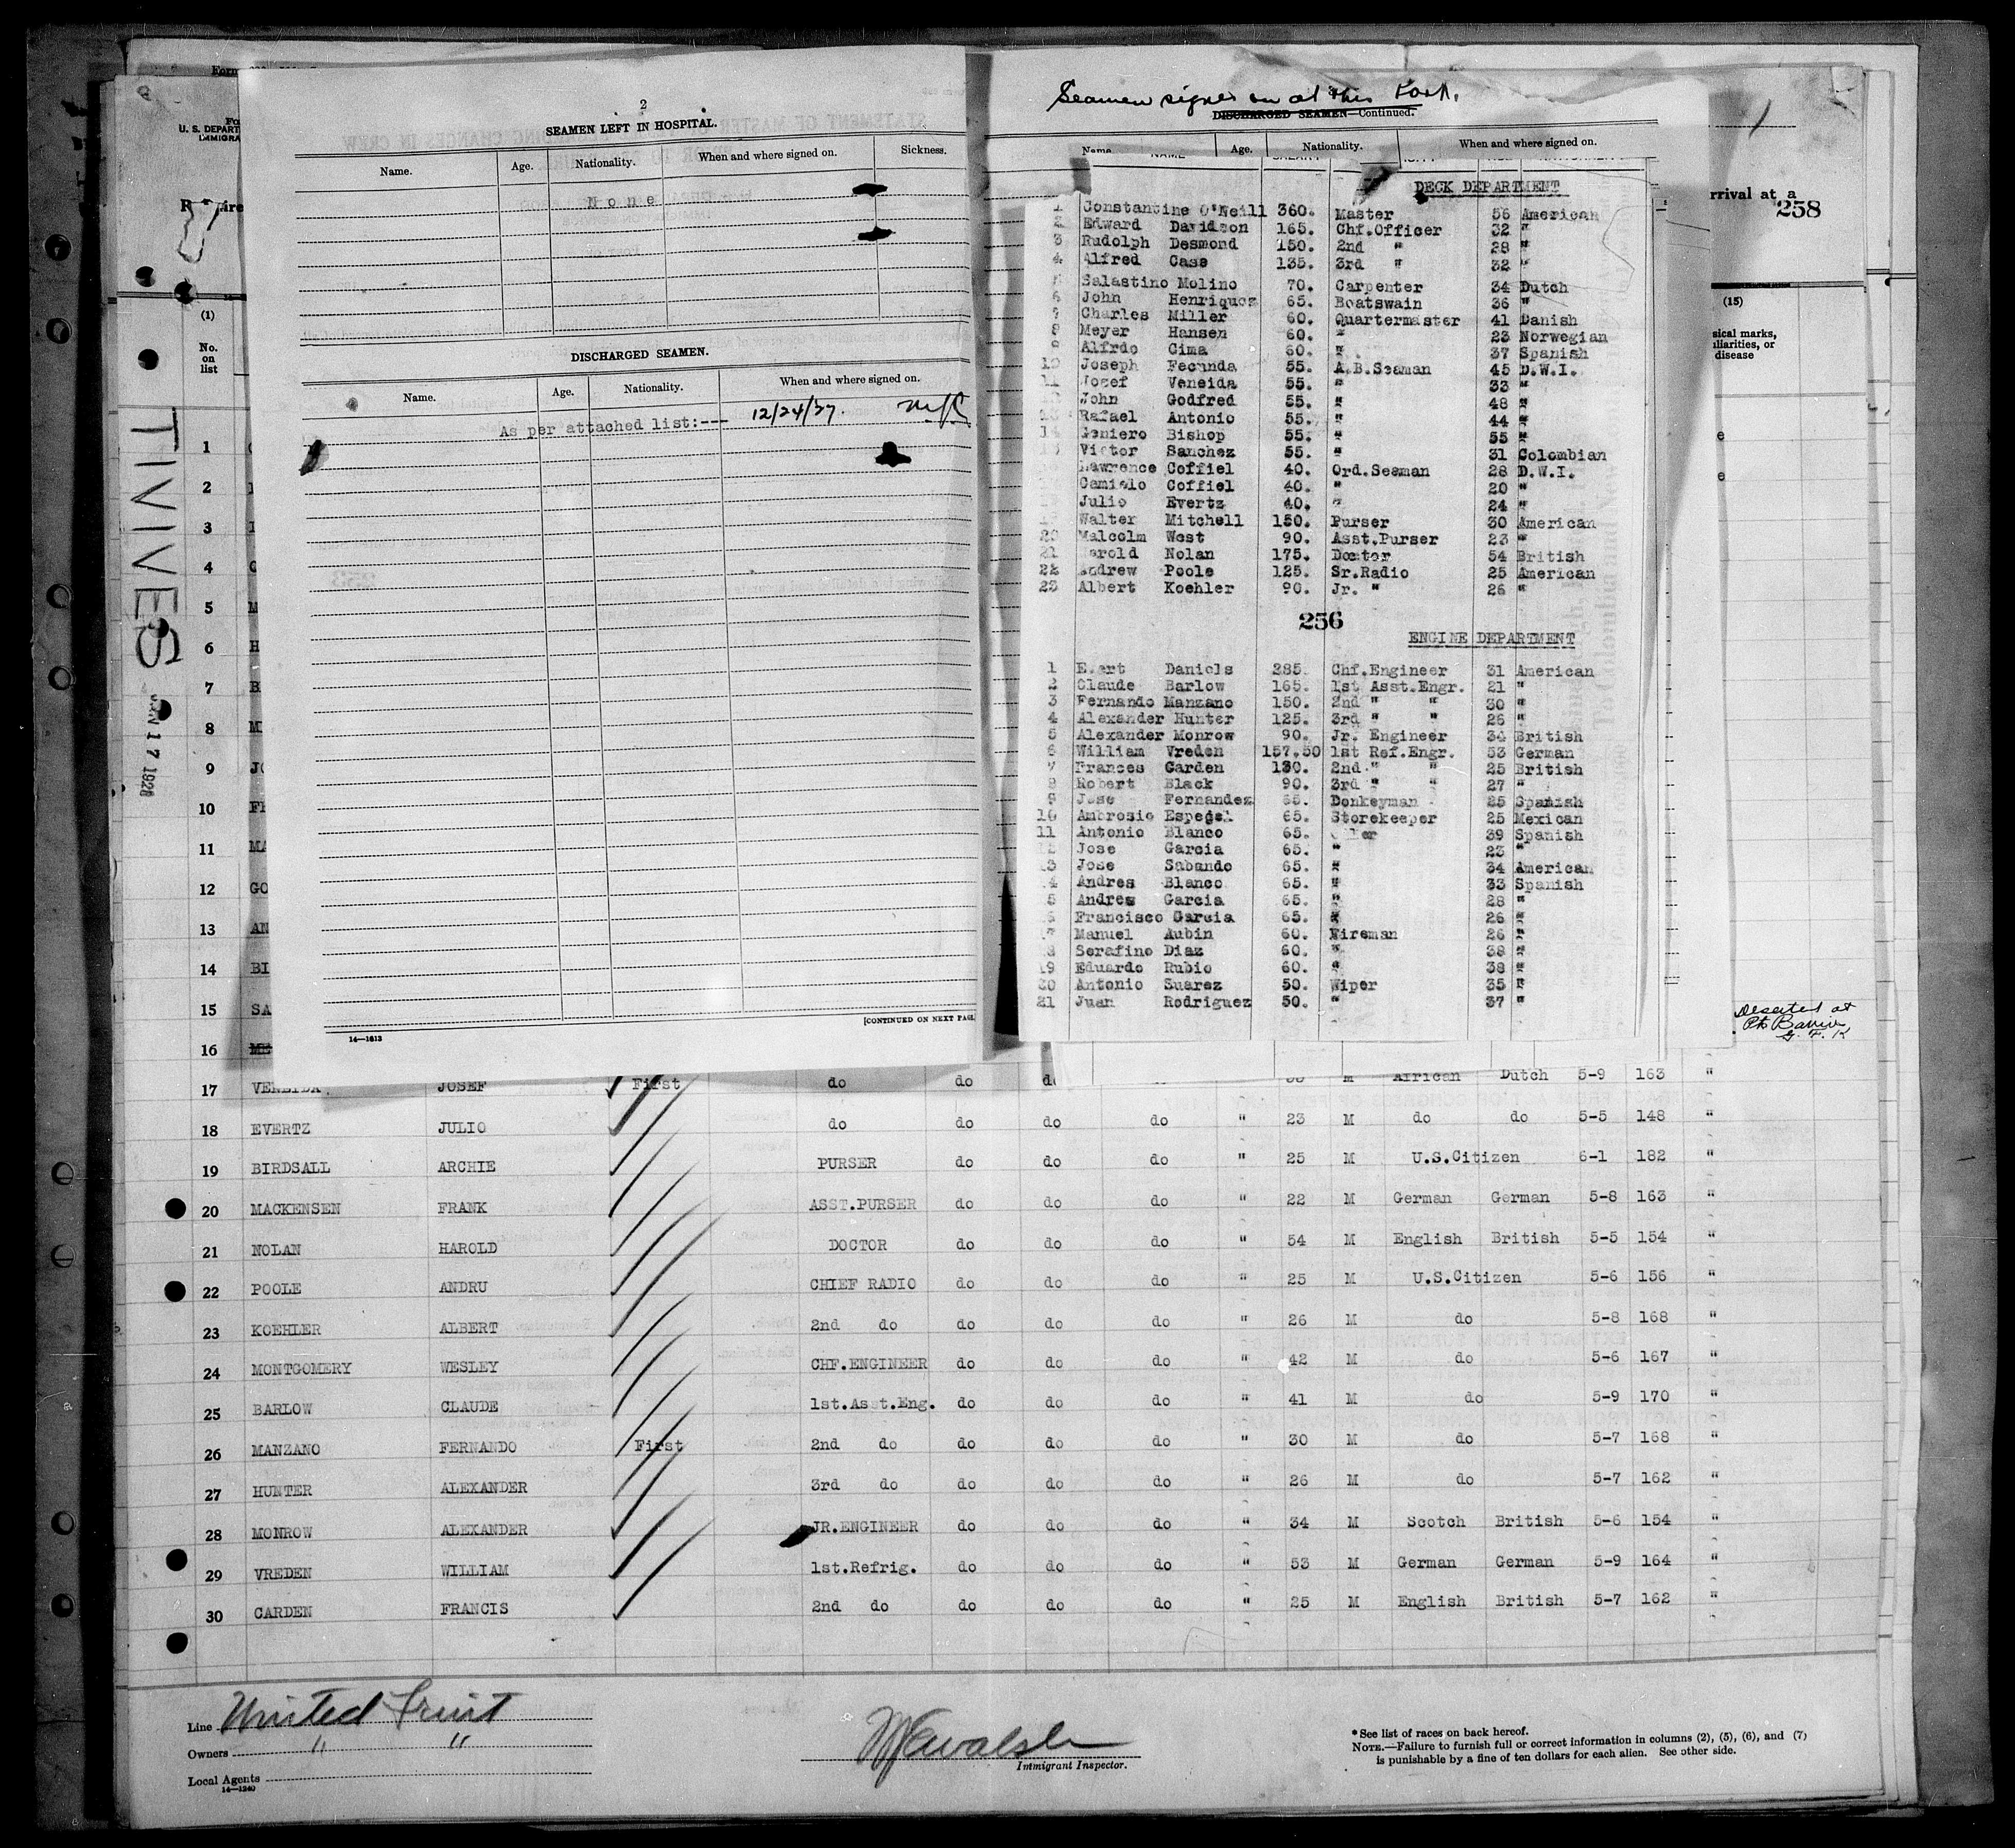 Form
U. S. DEPART
IMMIGRA
rrival at a
258
(1)
No.
on
list
(15)
sical marks,
uliarities, or
disease
TIVIVES
JAN 17 1928
2
SEAMEN LEFT IN HOSPITAL.
Name. Age. Nationality. When and where signed on. Sickness.
None
DISCHARGED SEAMEN.
Name. Age. Nationality. When and where signed on.
As per attached list:--- 12/24/27.
[CONTINUED ON NEXT PAGE
14—1613
Seamen signed on at this Port.
DISCHARGED SEAMEN—Continued.
Name. Age. Nationality. When and where signed on.
DECK DEPARTMENT
1 Constantine O'Neill 360. Master 56 American
2 Edward Davidson 165. Chf.Officer 32 "
3 Rudolph Desmond 150. 2nd " 28 "
4 Alfred Case 135. 3rd " 32 "
5 Salastino Molino 70. Carpenter 34 Dutch
6 John Henriquez 65. Boatswain 36 "
7 Charles Miller 60. Quartermaster 41 Danish
8 Meyer Hansen 60. " 23 Norwegian
9 Alfrdo Cima 60. " 37 Spanish
10 Joseph Fecunda 55. A.B.Seaman 45 D.W.I.
11 Josef Veneida 55. " 33 "
12 John Godfred 55. " 48 "
13 Rafael Antonio 55. " 44 "
14 Geniero Bishop 55. " 55 "
15 Victor Sanchez 55. " 31 Colombian
Lawrence Coffiel 40. Ord.Seaman 28 D.W.I.
Camielo Coffiel 40. " 20 "
Julio Evertz 40. " 24 "
19 Walter Mitchell 150. Purser 30 American
20 Malcolm West 90. Asst.Purser 23 "
21 Harold Nolan 175. Doctor 54 British
22 Andrew Poole 125. Sr.Radio 25 American
23 Albert Koehler 90. Jr. " 26 "
256
ENGINE DEPARTMENT
1 Evart Daniels 285. Chf.Engineer 31 American
2 Claude Barlow 165. 1st Asst.Engr. 21 "
3 Fernando Manzano 150. 2nd " " 30 "
4 Alexander Hunter 125. 3rd " " 26 "
5 Alexander Monrow 90. Jr. Engineer 34 British
6 William Vreden 157.50 1st Ref.Engr. 53 German
7 Frances Carden 130. 2nd " " 25 British
8 Robert Black 90. 3rd " " 27 "
9 Jose Fernandez 65. Donkeyman 25 Spanish
10 Ambrosio Espegel 65. Storekeeper 25 Mexican
11 Antonio Blanco 65. Oiler 39 Spanish
12 Jose Garcia 65. " 23 "
13 Jose Sabando 65. " 34 American
14 Andres Blanco 65. " 33 Spanish
5 Andres Garcia 65. " 28 "
6 Francisco Garcia 65. " 26 "
17 Manuel Aubin 60. Fireman 26 "
18 Serafino Diaz 60. " 38 "
19 Eduardo Rubio 60. " 38 "
20 Antonio Suarez 50. Wiper 35 "
21 Juan Rodriguez 50. " 37 "
1
2
3
4
5 M
6 H
7 B
8 M
9 JO
10 F
11 MA
12 GO
13 AN
14 BI
15 SA
16 ME
Deserted at
Pto Barrios
G. F. K
17 VENEIDA JOSEF First do do do do 33 M African Dutch 5-9 163 "
18 EVERTZ JULIO do do do do " 23 M do do 5-5 148 "
19 BIRDSALL ARCHIE PURSER do do do " 25 M U.S.Citizen 6-1 182 "
20 MACKENSEN FRANK ASST.PURSER do do do " 22 M German German 5-8 163 "
21 NOLAN HAROLD DOCTOR do do do " 54 M English British 5-5 154 "
22 POOLE ANDRU CHIEF RADIO do do do " 25 M U.S.Citizen 5-6 156 "
23 KOEHLER ALBERT 2nd do do do do " 26 M do 5-8 168 "
24 MONTGOMERY WESLEY CHF.ENGINEER do do do " 42 M do 5-6 167 "
25 BARLOW CLAUDE 1st.Asst.Eng. do do do " 41 M do 5-9 170 "
26 MANZANO FERNANDO First 2nd do do do do " 30 M do 5-7 168 "
27 HUNTER ALEXANDER 3rd do do do do " 26 M do 5-7 162 "
28 MONROW ALEXANDER JR.ENGINEER do do do " 34 M Scotch British 5-6 154 "
29 VREDEN WILLIAM 1st.Refrig. do do do " 53 M German German 5-9 164 "
30 CARDEN FRANCIS 2nd do do do do " 25 M English British 5-7 162 "
Line United Fruit
Owners " "
Local Agents
14—1240
Immigrant Inspector.
*See list of races on back hereof.
NOTE.—Failure to furnish full or correct information in columns (2), (5), (6), and (7)
is punishable by a fine of ten dollars for each alien. See other side.